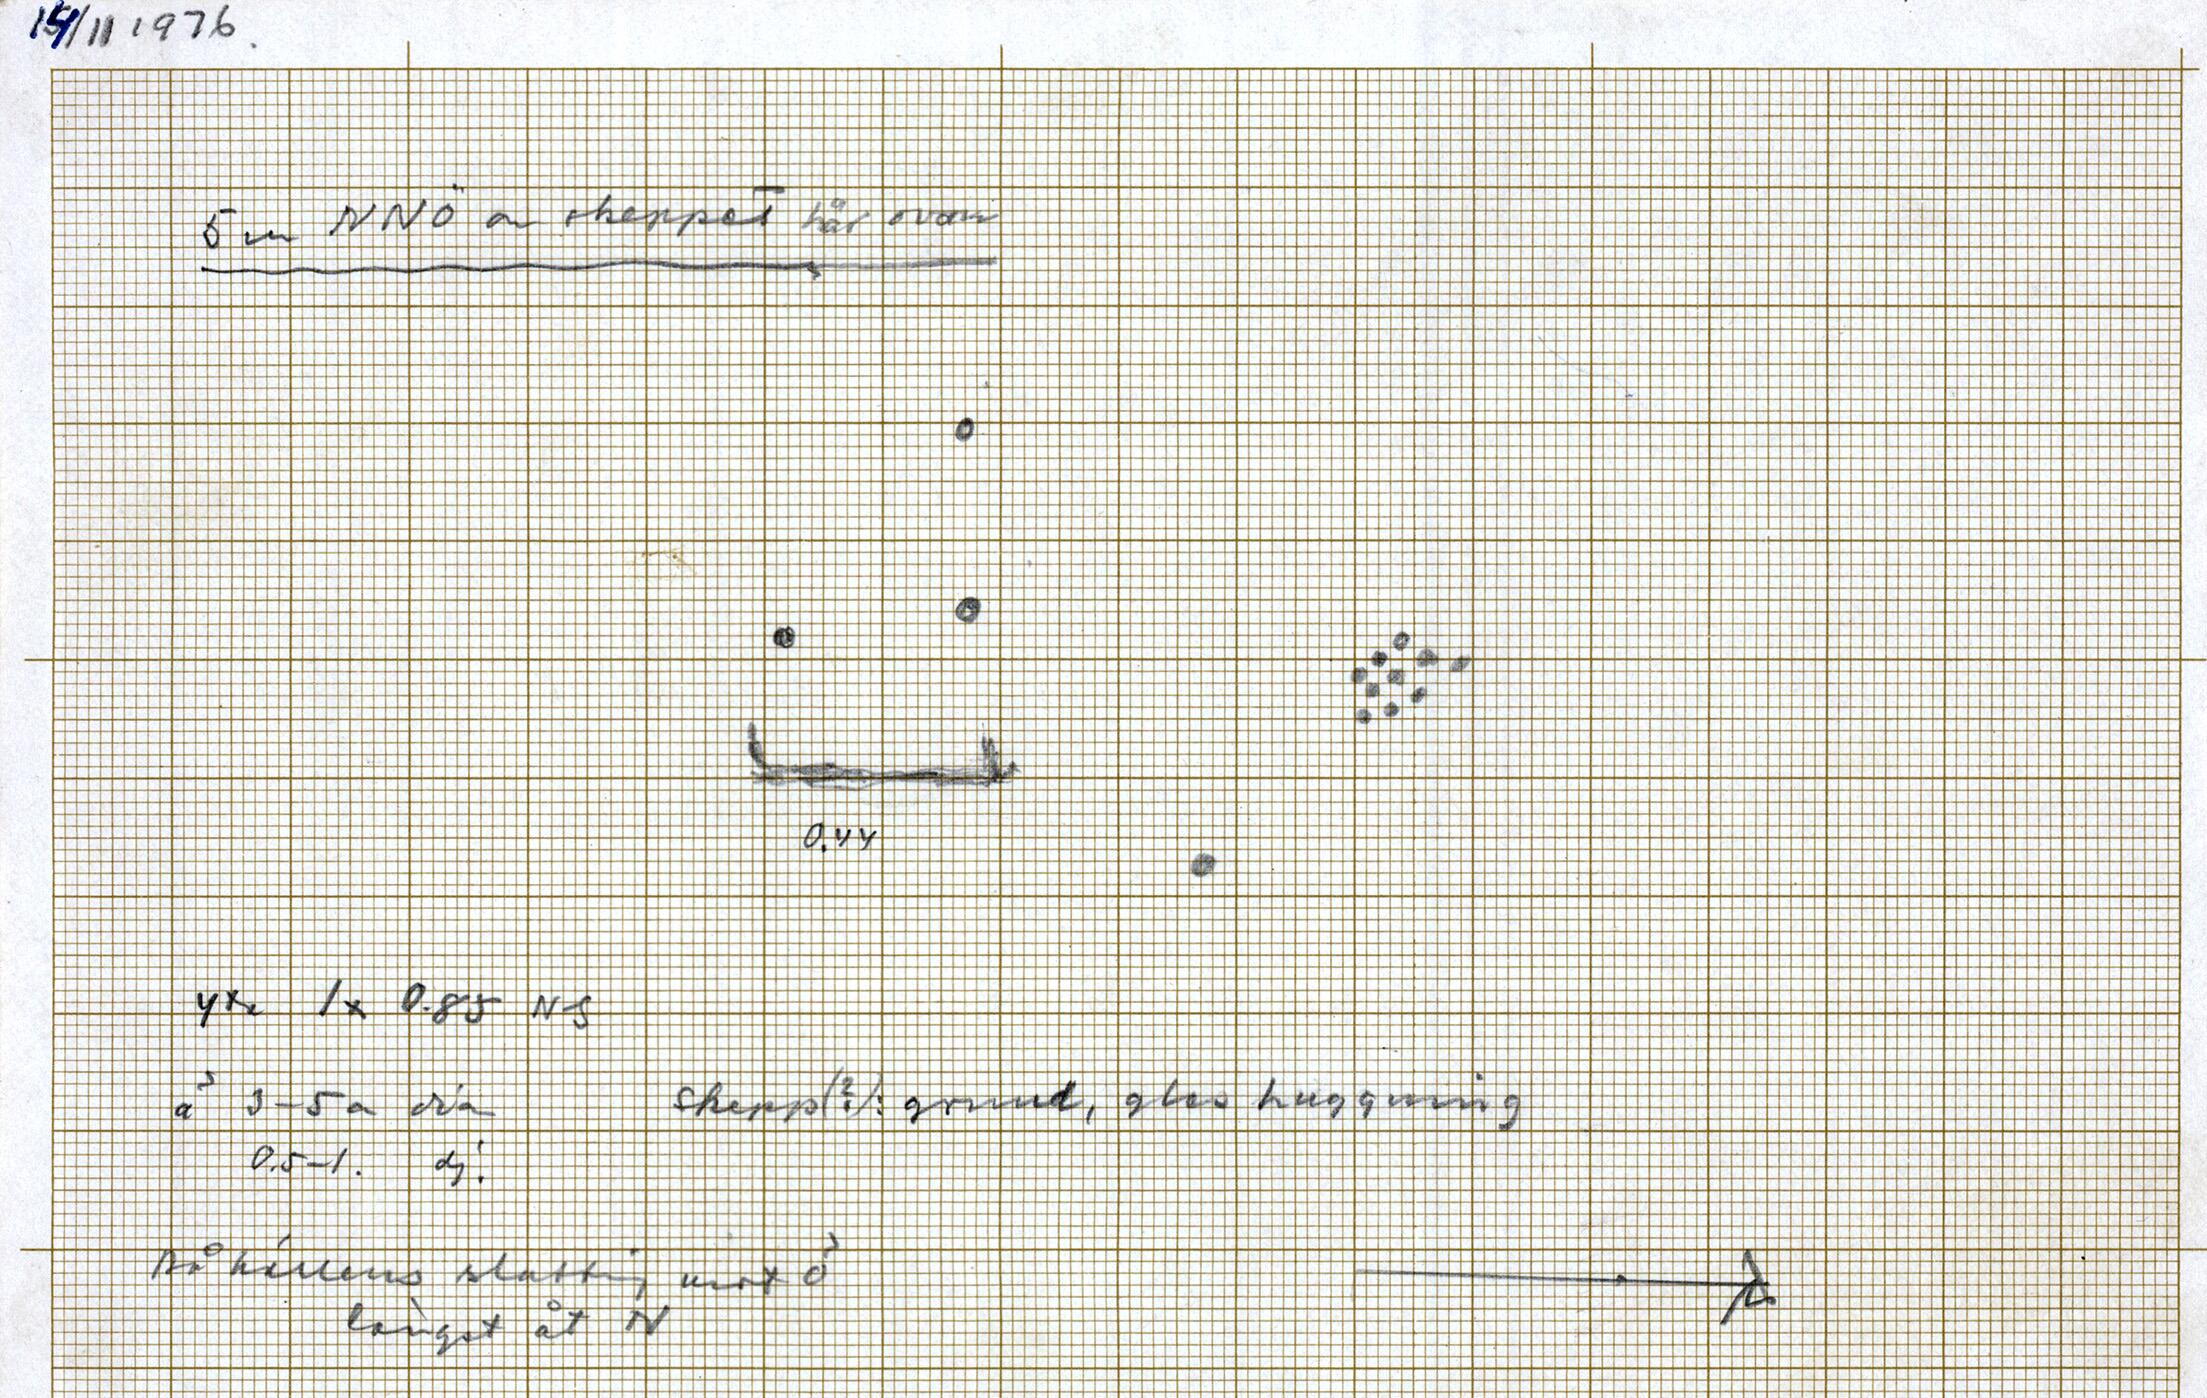 15/11 1976.
5 m NNÖ om skeppet här ovan
0.44
yta 1 x 0.85 N-S
å 3-5 dia
0.5-1. dj.
skepp(?): grund, gles huggning
På hällens sluttning mot Ö
längst åt N